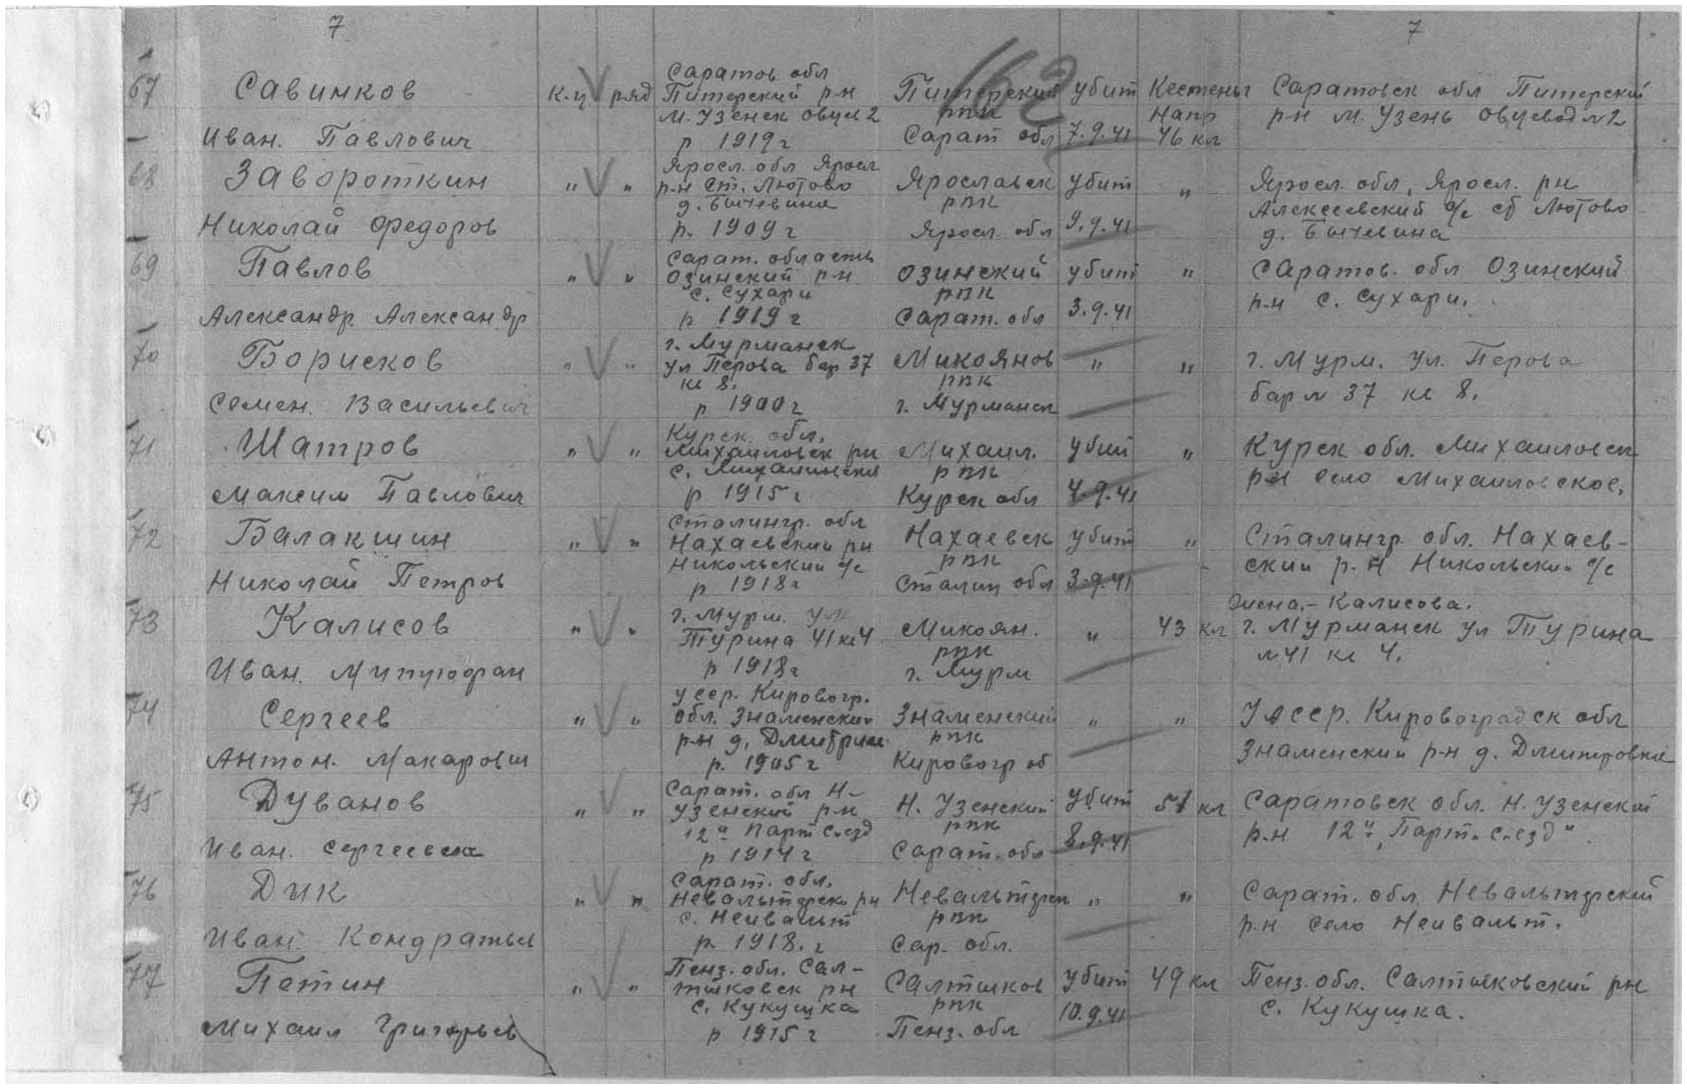 7 7
162
67 Савинков к-ц ряд Саратов обл Питерский р-н М. Узенск овцев 2 р 1919 г Питерский рпк Сарат обл убит 7.9.41 Кестеньг Напр 46 кл Саратовск обл Питерский р-н М. Узень овцевод №2
Иван. Павлович
68 Завороткин " " Яросл. обл Яросл р-н ст. Лютово д. Бычевина р. 1909 г Ярославск рпк Яросл. обл убит 9.9.41 " Яросл. обл, Яросл. рн Алексеевский с/с сб Лютово д. Бычевина
Николай Федоров
69 Павлов " " Сарат. область Озинский р-н с. Сухари р 1919 г Озинский рпк Сарат. обл убит 3.9.41 " Саратов. обл Озинский р-н с. Сухари.
Александр Александр
70 Борисков " " г. Мурманск ул Перова бар 37 кв 8. р 1900 г Микоянов рпк г. Мурманск " " г. Мурм. ул. Перова бар № 37 кв 8.
Семен. Васильевич
71 Шатров " " Курск. обл. Михайловск рн с. р 1915 г Михаил. рпк Курск обл убит 4.9.41 " Курск обл. Михайловск рн село Михайловское.
Максим Павлович
72 Балакшин " " Сталингр. обл Нахаевский рн Никольский с/с р 1918 г Нахаевск рпк Сталин обл убит 3.9.41 " Сталингр обл. Нахаев-
ский р-н Никольский с/с
Николай Петров
73 Калисов " " г. Мурм. ул Турина 41 кв 4 р 1918 г Микоян. рпк г. Мурм " 43 кл Жена - Калисова.
г. Мурманск ул Турина №41 кв 4.
Иван.
74 Сергеев " " Усср. Кировогр. обл. Знаменский р-н д. р. 1905 г Знаменский рпк Кировогр об " " Усср. Кировоградск обл Знаменский р-н д. Дмитровка
Антон. Макарович
75 Дуванов " " Сарат. обл Н-
узенский р-н 12й Парт съезд р 1914 г Н. Узенский рпк Сарат. обл убит 8.9.41 51 кл Саратовск обл. Н. Узенский р-н 12й "Парт. съезд"
Иван.
76 Дик " " Сарат. обл. Невальтерск рн с. р. 1918. г Невальтерск рпк Сар. обл. " " Сарат. обл Невальтерский р-н село Нейвальт.
Иван Кондратьев
77 Петин " " Пенз. обл. Сал-
тыковск рн с. Кукушка р 1915 г Салтыков рпк Пенз. обл убит 10.9.41 49 кл Пенз. обл. Салтыковский рн с. Кукушка.
Михаил Григорьев